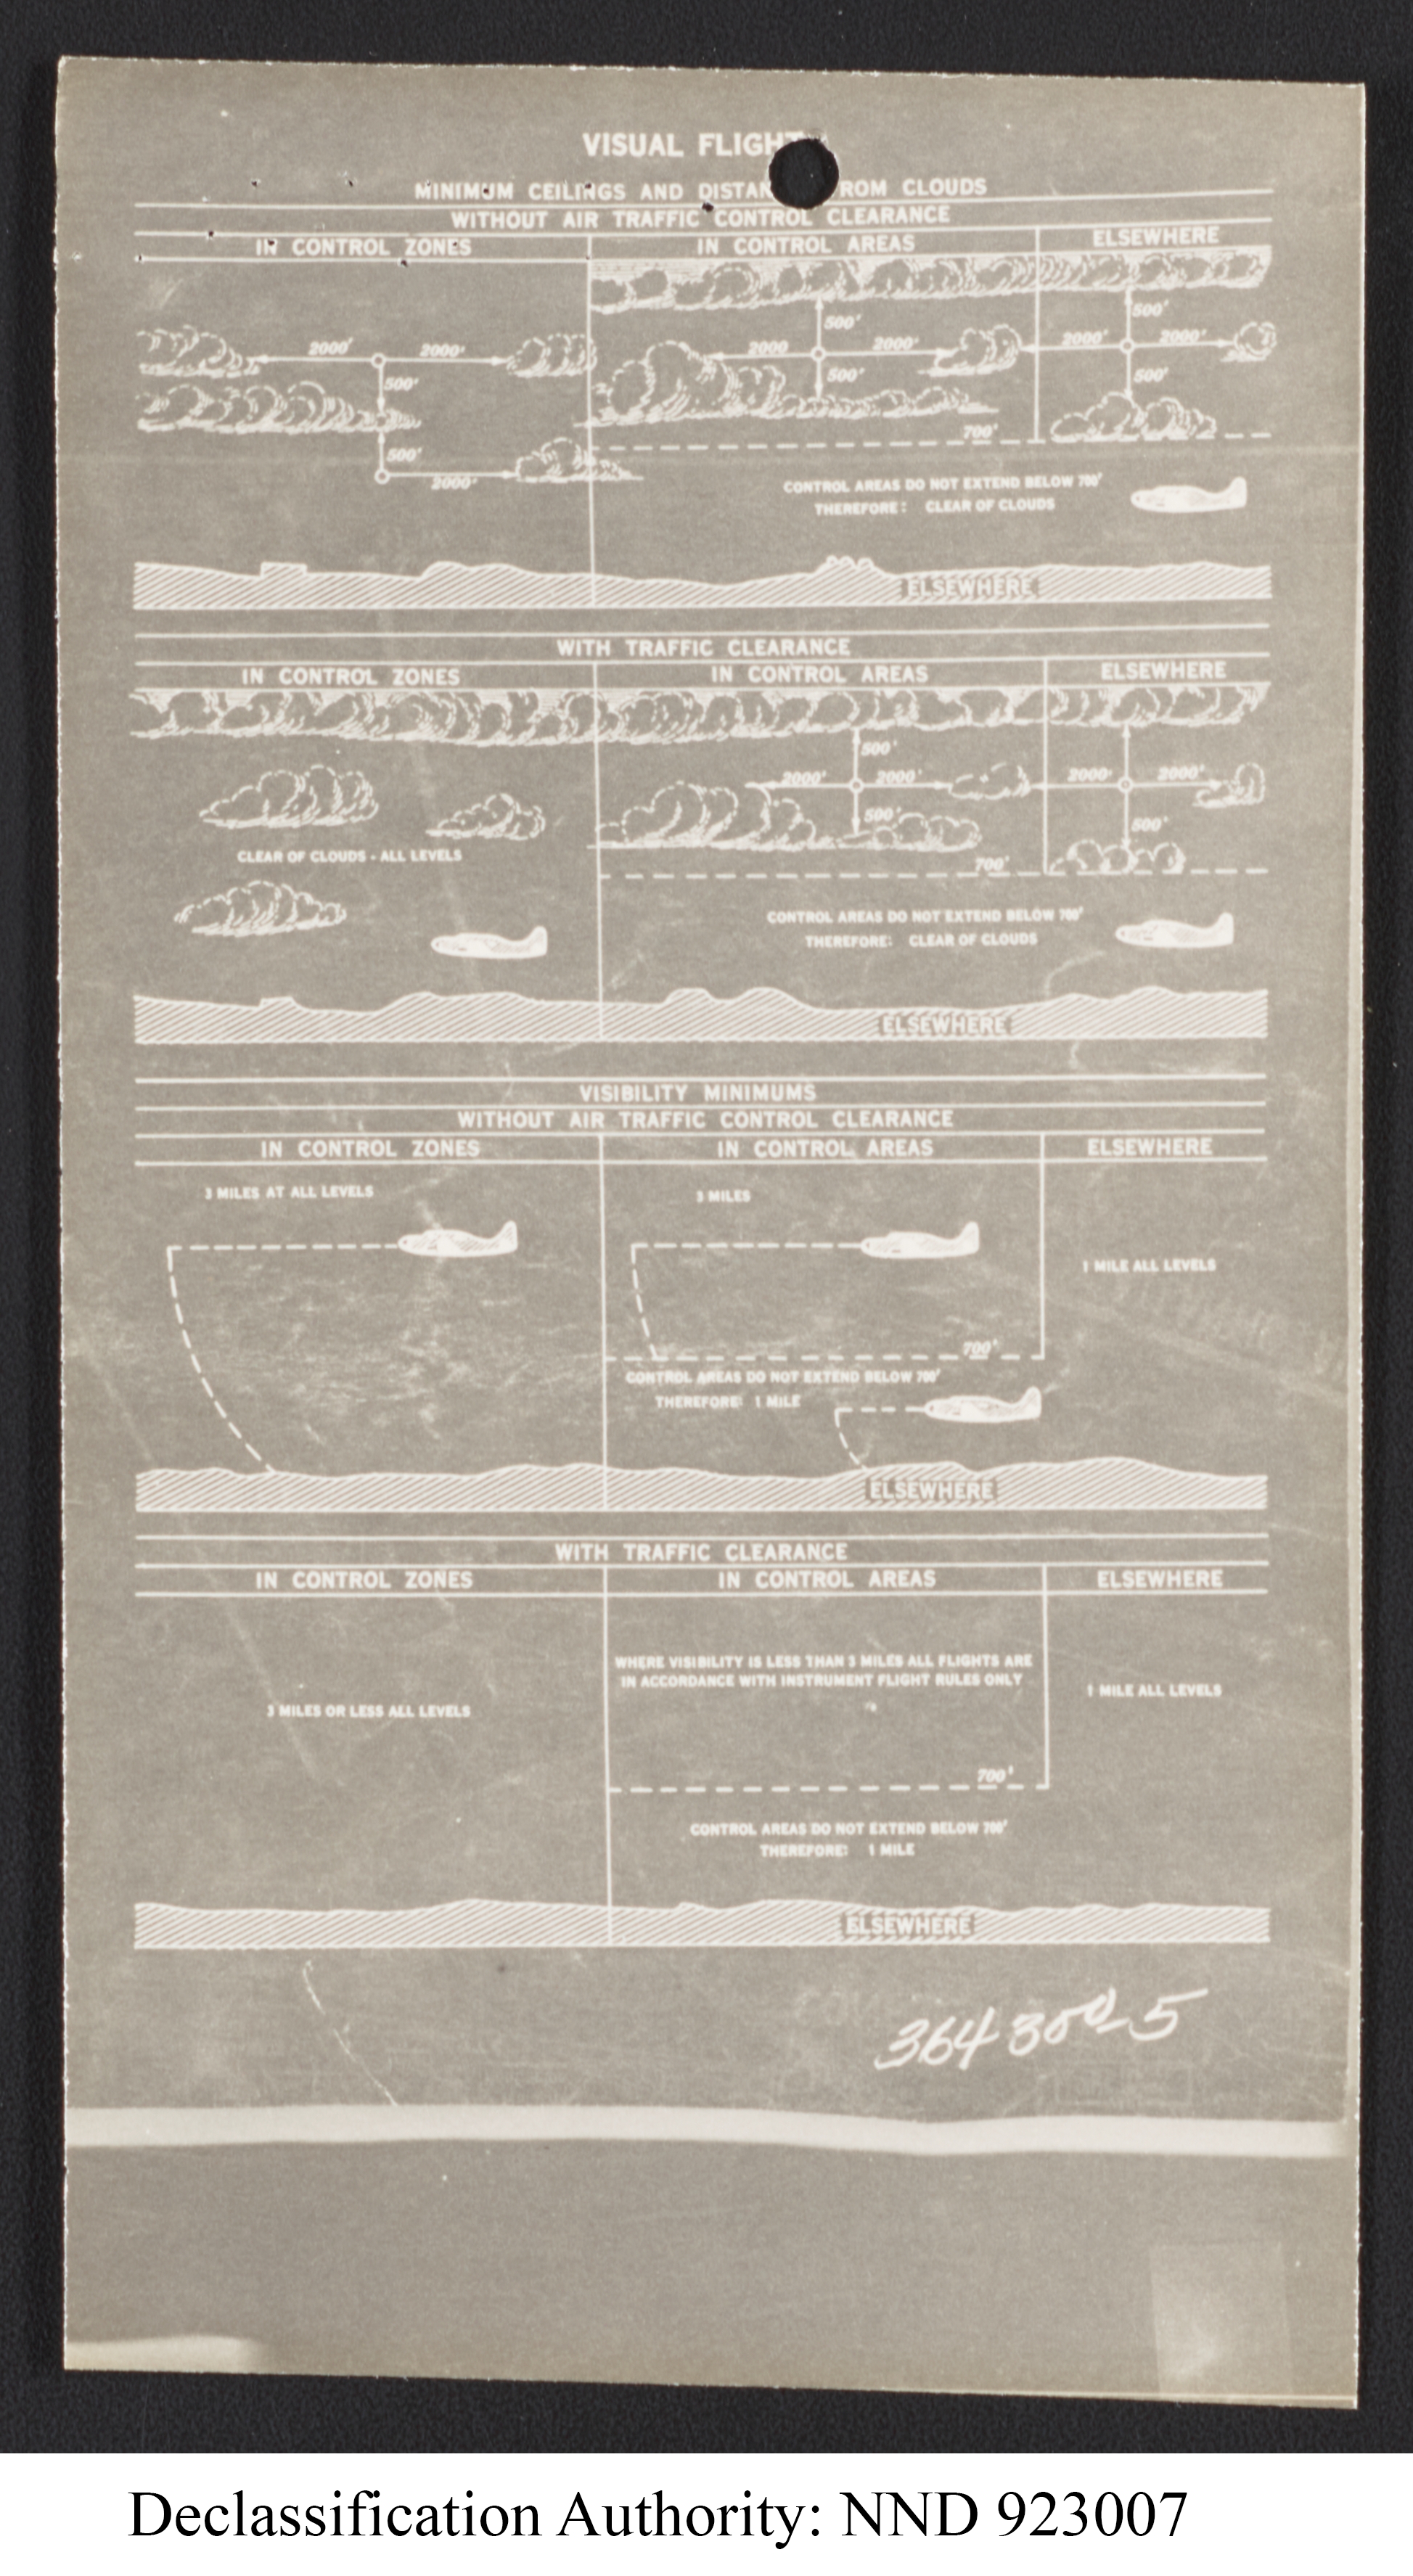 VISUAL FLIGHT
MINIMUM CEILINGS AND DISTAN ROM CLOUDS
WITHOUT AIR TRAFFIC CONTROL CLEARANCE
IN CONTROL ZONES IN CONTROL AREAS ELSEWHERE
500' 500'
2000' 2000' 2000 2000' 2000' 2000'
500' 500' 500'
700'
500'
2000'
CONTROL AREAS DO NOT EXTEND BELOW 700'
THEREFORE: CLEAR OF CLOUDS
ELSEWHERE
WITH TRAFFIC CLEARANCE
IN CONTROL ZONES IN CONTROL AREAS ELSEWHERE
500'
2000' 2000' 2000' 2000'
500' 500'
CLEAR OF CLOUDS - ALL LEVELS
700'
CONTROL AREAS DO NOT EXTEND BELOW 700'
THEREFORE: CLEAR OF CLOUDS
ELSEWHERE
VISIBILITY MINIMUMS
WITHOUT AIR TRAFFIC CONTROL CLEARANCE
IN CONTROL ZONES IN CONTROL AREAS ELSEWHERE
3 MILES AT ALL LEVELS 3 MILES
1 MILE ALL LEVELS
700'
CONTROL AREAS DO NOT EXTEND BELOW 700'
THEREFORE: 1 MILE
ELSEWHERE
WITH TRAFFIC CLEARANCE
IN CONTROL ZONES IN CONTROL AREAS ELSEWHERE
WHERE VISIBILITY IS LESS THAN 3 MILES ALL FLIGHTS ARE
IN ACCORDANCE WITH INSTRUMENT FLIGHT RULES ONLY
1 MILE ALL LEVELS
3 MILES OR LESS ALL LEVELS
700'
CONTROL AREAS DO NOT EXTEND BELOW 700'
THEREFORE: 1 MILE
ELSEWHERE
364300-5
Declassification Authority: NND 923007